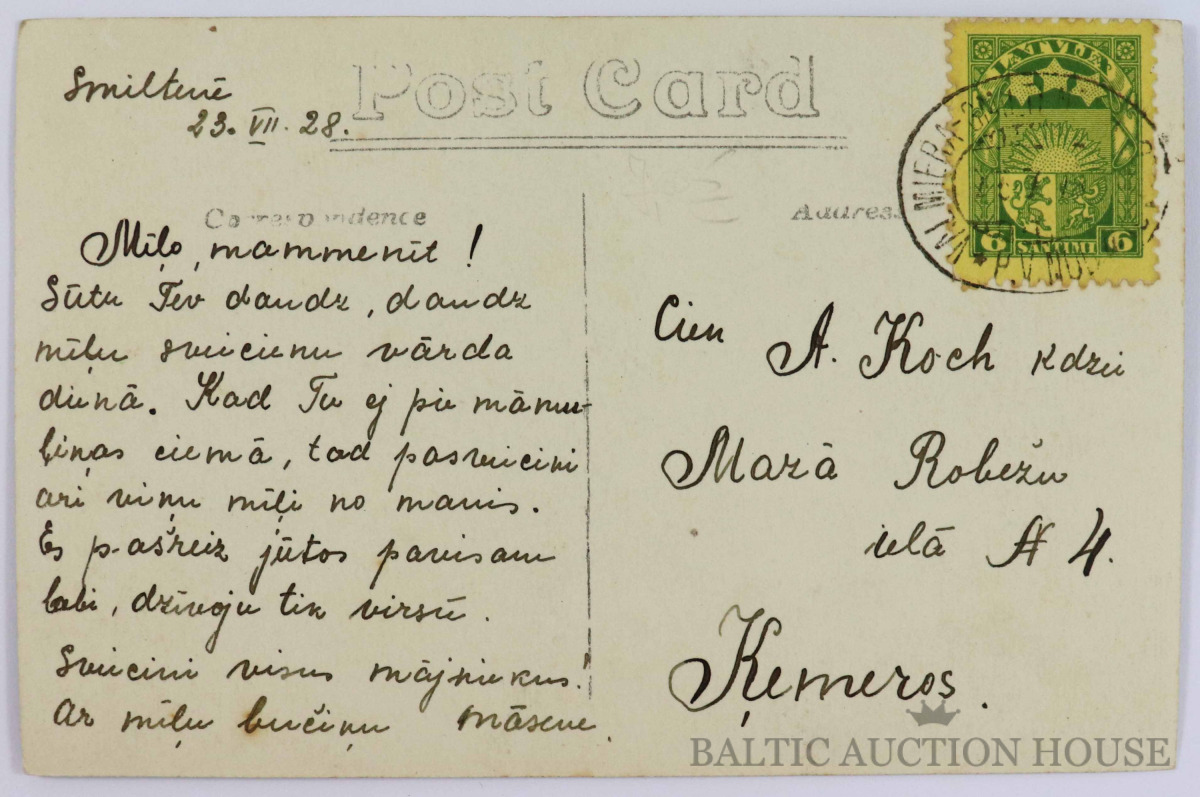 Post Card
Smiltenē
23. VII. 28.
Correspondence
Mīļo, mammenīt!
Sūtu Tev daudz, daudz
mīļu sveicienu vārda
dienā. Kad Tu ej pie māmu-
liņas ciemā, tad pasveicini
ari viņu mīļi no manis.
Es pašreiz jūtos pavisam
labi, dzīvoju tik virsū.
Sveicini visus mājniekus!
Ar mīļu bučiņu māsene.
LATVIJA
6 SANTIMI 6
VALMIERA
P.V. NOD
Address
Cien
A. Koch kdzei
Mazā Robežu
ielā № 4.
Ķemeros.
BALTIC AUCTION HOUSE